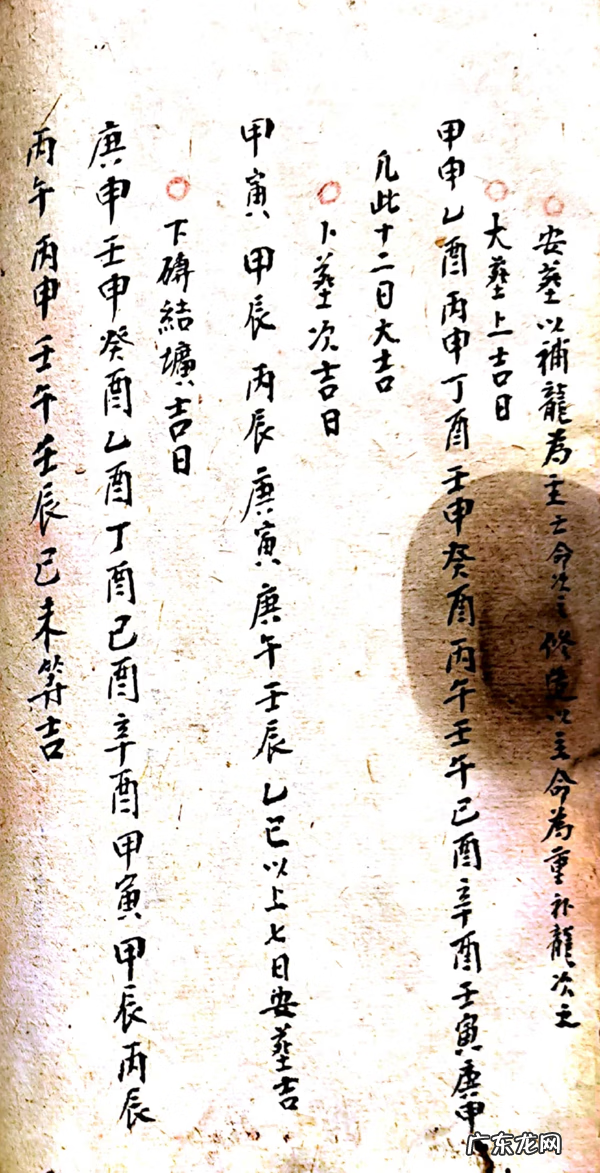 ○安葬以補龍為主亡命次之修造以主命為重补龍次之
○大葬上吉日
甲申乙酉丙申丁酉壬申癸酉丙午壬午己酉辛酉壬寅庚申
凡此十二日大吉
○卜葬次吉日
甲寅甲辰丙辰庚寅庚午壬辰乙巳以上七日安葬吉
○下磚結壙吉日
庚申壬申癸酉乙酉丁酉己酉辛酉甲寅甲辰丙辰
丙午丙申壬午壬辰己未等吉
广东龙网